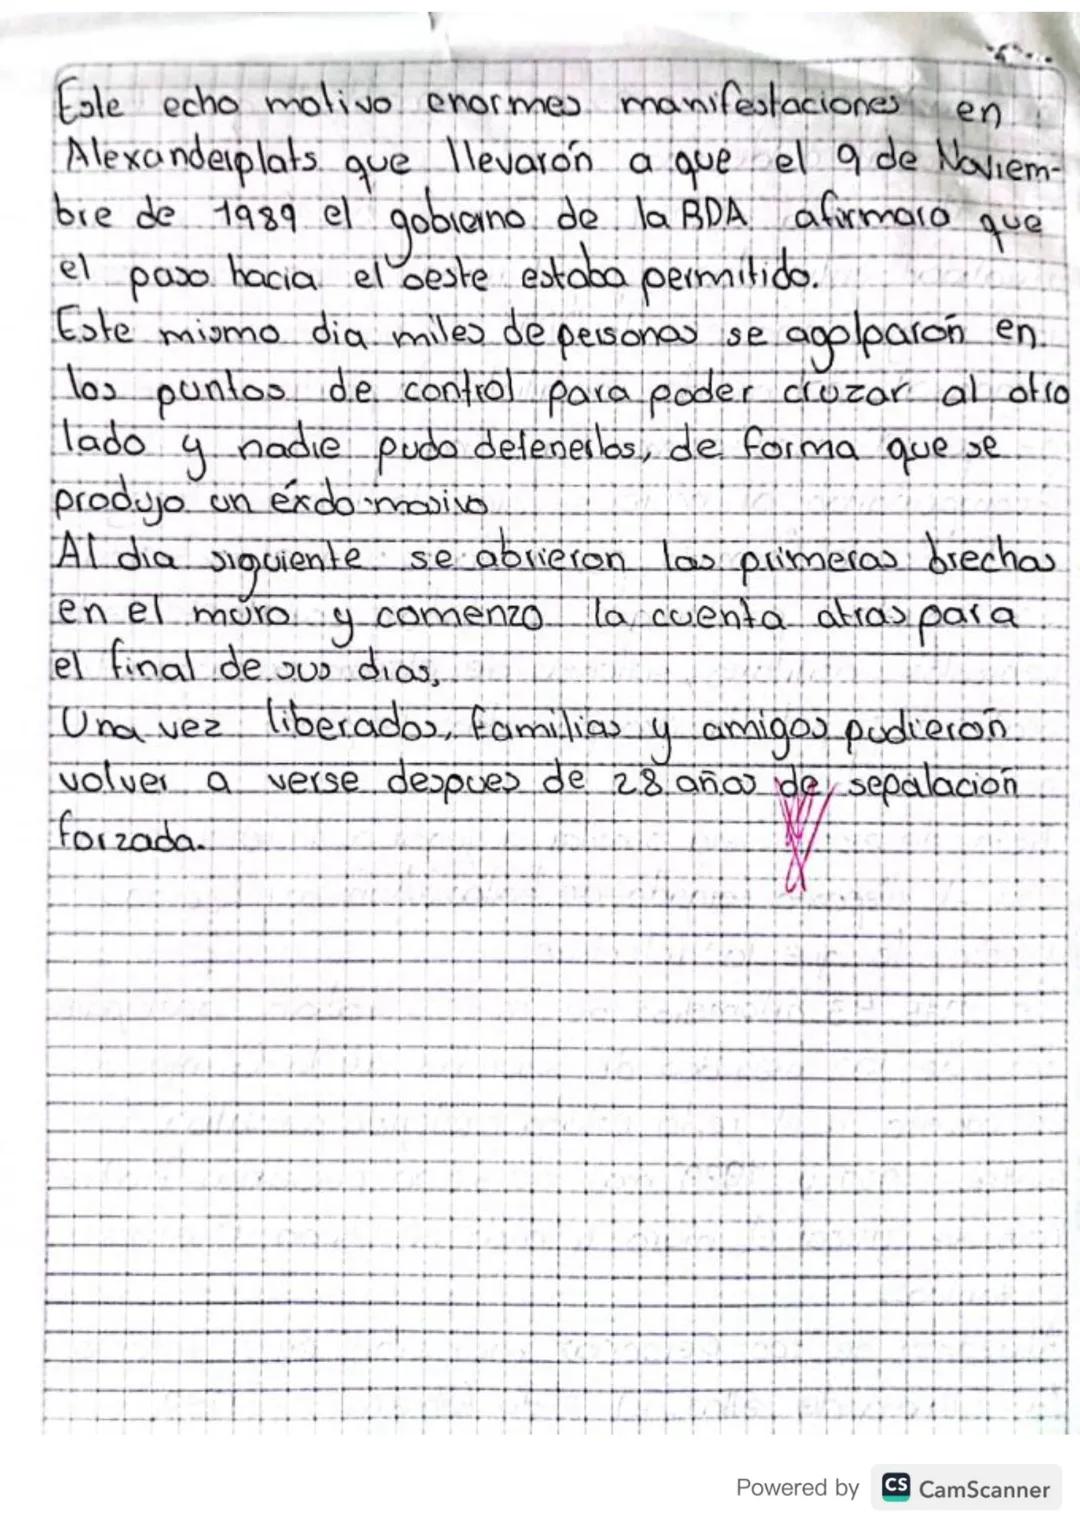 Este echo motivo enormes manifestaciones en
Alexanderplats que llevarón a que el 9 de Noviem-
bre de 1989 el gobierno de la RDA afirmara que
el paso hacia el oeste estaba permitido.
Este mismo dia miles de personas se agolparón en
los puntos de control para poder cruzar al otro
lado y nadie pudo detenerlos, de forma que se
produjo un éxdo masivo
Al dia siguiente se abrieron las primeras brechas
en el muro y comenzo la cuenta atras para
el final de sus dias,
Una vez liberados, familias y amigos pudierón
volver a verse despues de 28 años de sepalación
forzada.
Powered by CS CamScanner